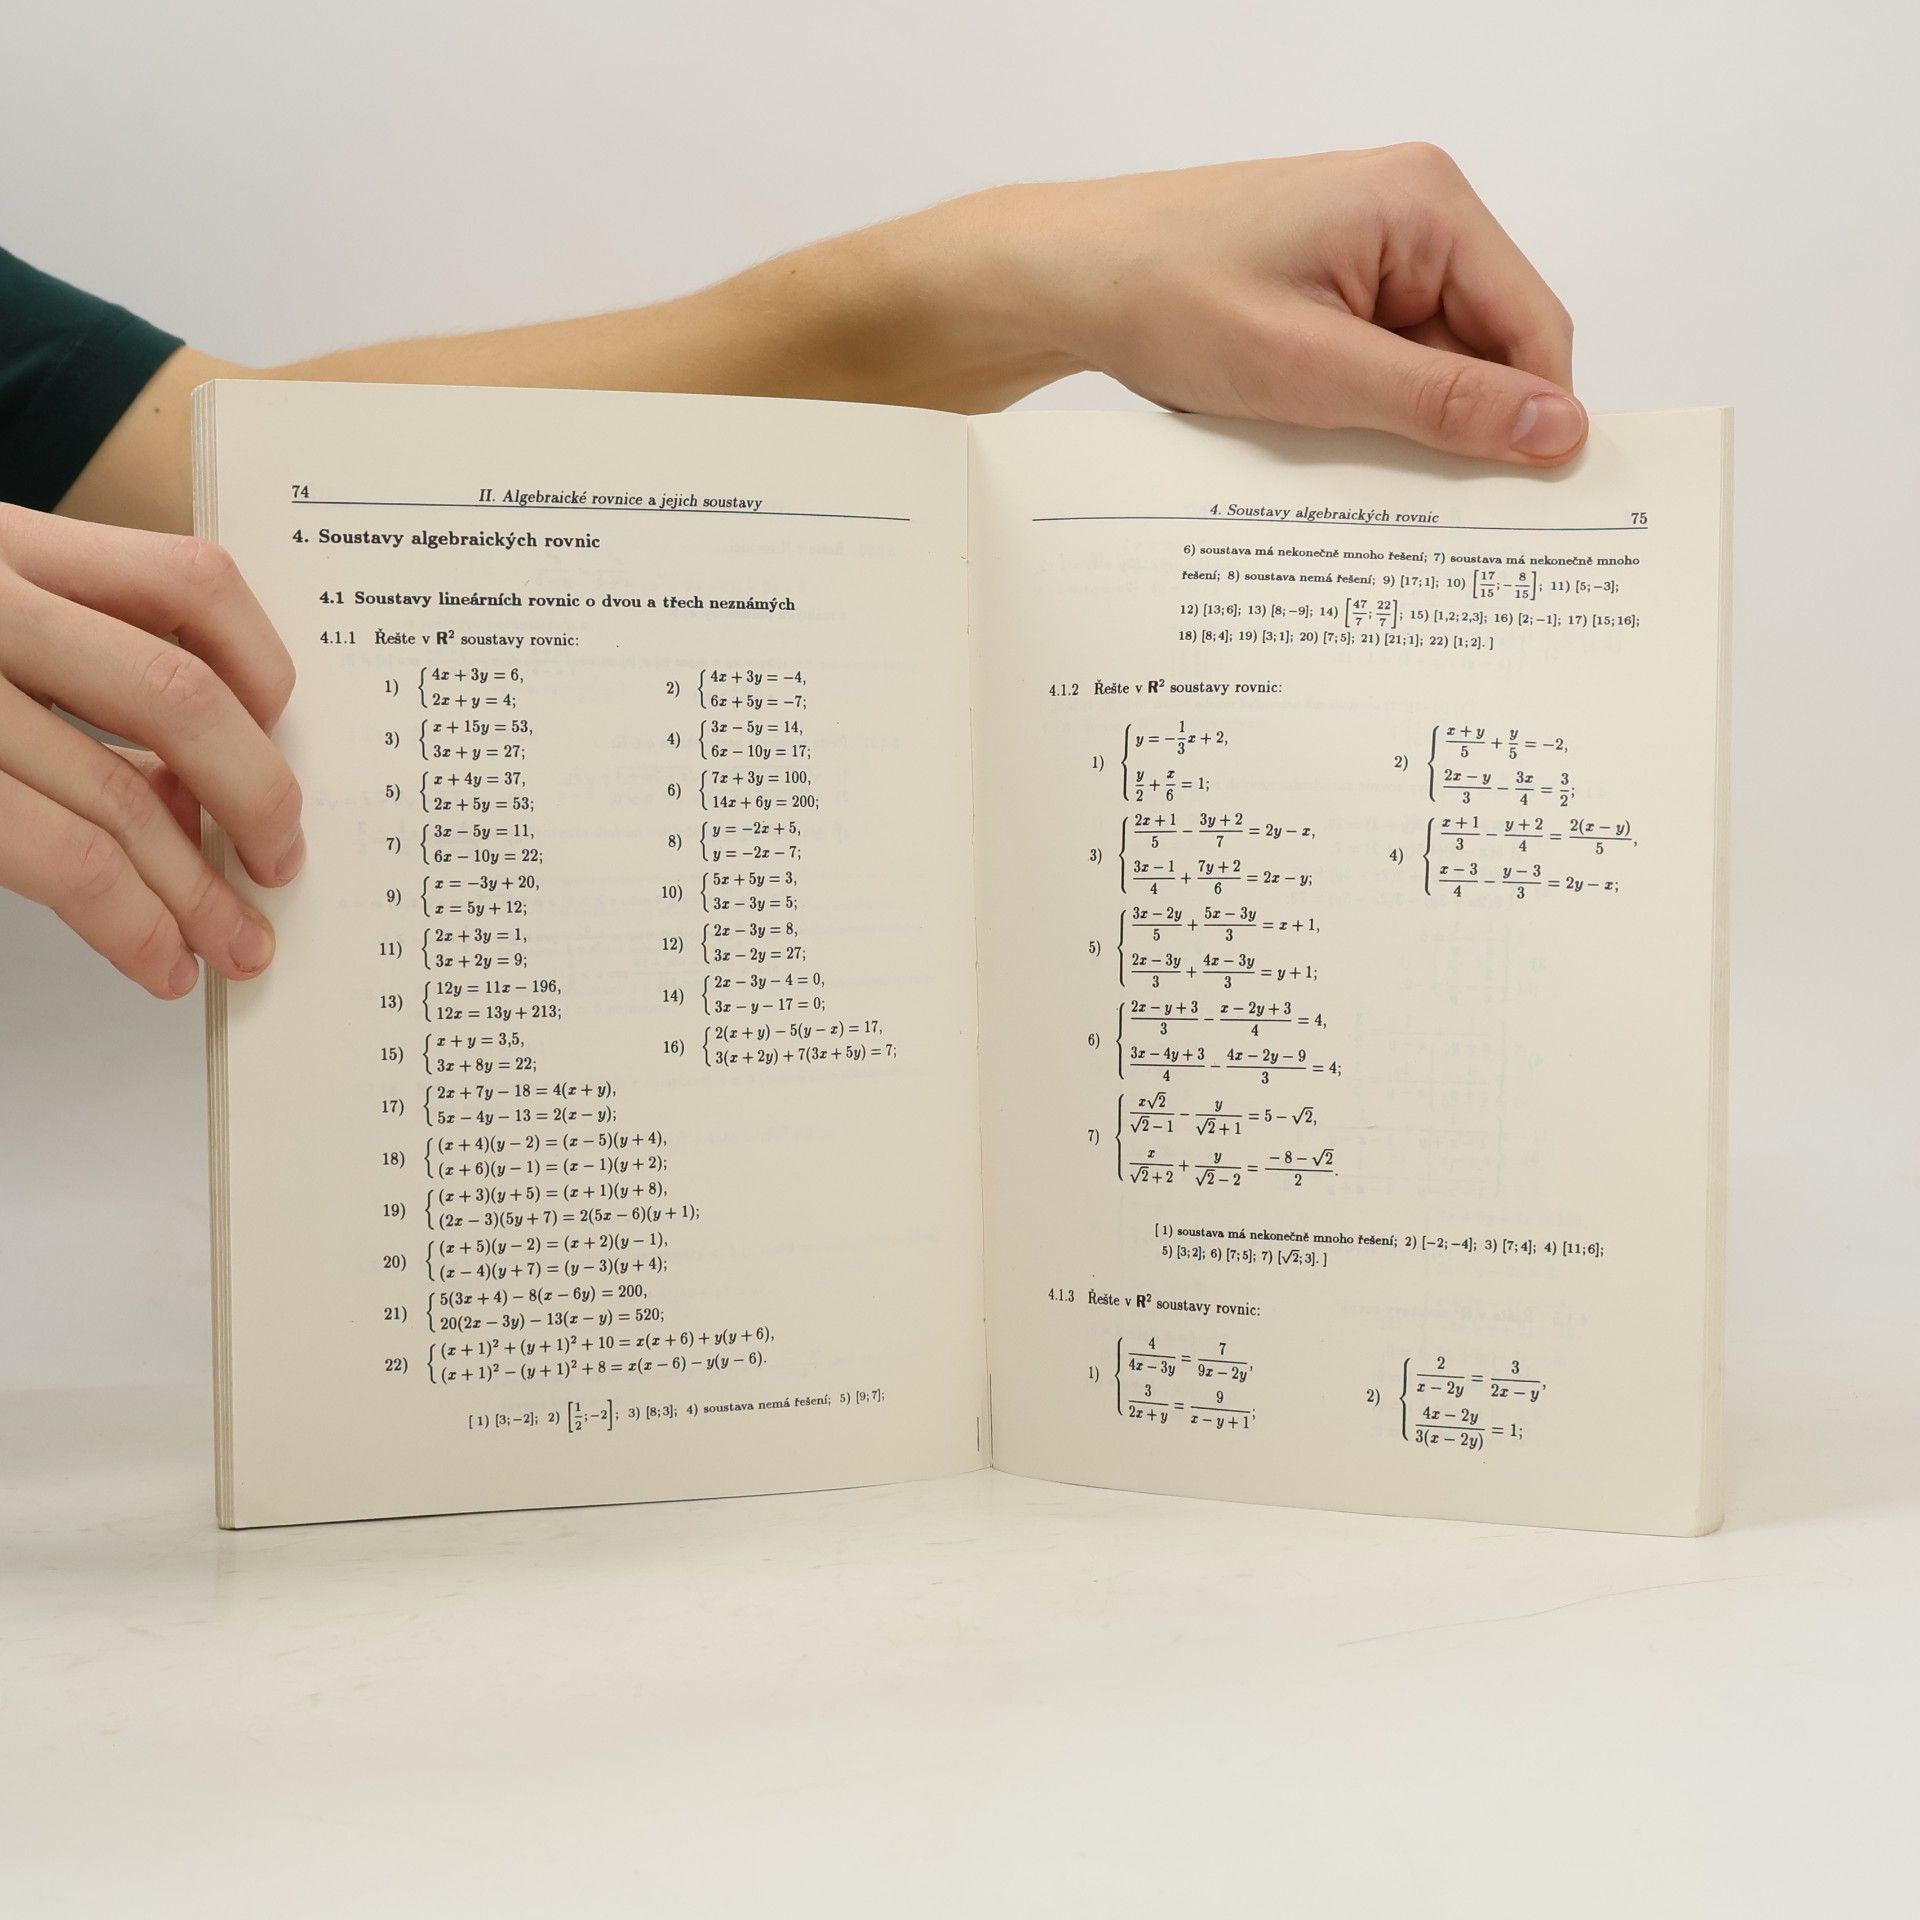 74
II. Algebraické rovnice a jejich soustavy
4. Soustavy algebraických rovnic
4.1 Soustavy lineárních rovnic o dvou a třech neznámých
4.1.1 Řešte v R² soustavy rovnic:
1) { 4x + 3y = 6,
2x + y = 4;
2) { 4x + 3y = −4,
6x + 5y = −7;
3) { x + 15y = 53,
3x + y = 27;
4) { 3x − 5y = 14,
6x − 10y = 17;
5) { x + 4y = 37,
2x + 5y = 53;
6) { 7x + 3y = 100,
14x + 6y = 200;
7) { 3x − 5y = 11,
6x − 10y = 22;
8) { y = −2x + 5,
y = −2x − 7;
9) { x = −3y + 20,
x = 5y + 12;
10) { 5x + 5y = 3,
3x − 3y = 5;
11) { 2x + 3y = 1,
3x + 2y = 9;
12) { 2x − 3y = 8,
3x − 2y = 27;
13) { 12y = 11x − 196,
12x = 13y + 213;
14) { 2x − 3y − 4 = 0,
3x − y − 17 = 0;
15) { x + y = 3,5,
3x + 8y = 22;
16) { 2(x + y) − 5(y − x) = 17,
3(x + 2y) + 7(3x + 5y) = 7;
17) { 2x + 7y − 18 = 4(x + y),
5x − 4y − 13 = 2(x − y);
18) { (x + 4)(y − 2) = (x − 5)(y + 4),
(x + 6)(y − 1) = (x − 1)(y + 2);
19) { (x + 3)(y + 5) = (x + 1)(y + 8),
(2x − 3)(5y + 7) = 2(5x − 6)(y + 1);
20) { (x + 5)(y − 2) = (x + 2)(y − 1),
(x − 4)(y + 7) = (y − 3)(y + 4);
21) { 5(3x + 4) − 8(x − 6y) = 200,
20(2x − 3y) − 13(x − y) = 520;
22) { (x + 1)² + (y + 1)² + 10 = x(x + 6) + y(y + 6),
(x + 1)² − (y + 1)² + 8 = x(x − 6) − y(y − 6).
[ 1) [3; −2]; 2) [1/2; −2]; 3) [8; 3]; 4) soustava nemá řešení; 5) [9; 7];
4. Soustavy algebraických rovnic
75
6) soustava má nekonečně mnoho řešení; 7) soustava má nekonečně mnoho
řešení; 8) soustava nemá řešení; 9) [17; 1]; 10) [17/15; −8/15]; 11) [5; −3];
12) [13; 6]; 13) [8; −9]; 14) [47/7; 22/7]; 15) [1,2; 2,3]; 16) [2; −1]; 17) [15; 16];
18) [8; 4]; 19) [3; 1]; 20) [7; 5]; 21) [21; 1]; 22) [1; 2]. ]
4.1.2 Řešte v R² soustavy rovnic:
1) { y = −1/3 x + 2,
y/2 + x/6 = 1;
2) { (x + y)/5 + y/5 = −2,
(2x − y)/3 − 3x/4 = 3/2;
3) { (2x + 1)/5 − (3y + 2)/7 = 2y − x,
(3x − 1)/4 + (7y + 2)/6 = 2x − y;
4) { (x + 1)/3 − (y + 2)/4 = 2(x − y)/5,
(x − 3)/4 − (y − 3)/3 = 2y − x;
5) { (3x − 2y)/5 + (5x − 3y)/3 = x + 1,
(2x − 3y)/3 + (4x − 3y)/3 = y + 1;
6) { (2x − y + 3)/3 − (x − 2y + 3)/4 = 4,
(3x − 4y + 3)/4 − (4x − 2y − 9)/3 = 4;
7) { x√2/(√2 − 1) − y/(√2 + 1) = 5 − √2,
x/(√2 + 2) + y/(√2 − 2) = (−8 − √2)/2.
[ 1) soustava má nekonečně mnoho řešení; 2) [−2; −4]; 3) [7; 4]; 4) [11; 6];
5) [3; 2]; 6) [7; 5]; 7) [√2; 3]. ]
4.1.3 Řešte v R² soustavy rovnic:
1) { 4/(4x − 3y) = 7/(9x − 2y),
3/(2x + y) = 9/(x − y + 1);
2) { 2/(x − 2y) = 3/(2x − y),
(4x − 2y)/(3(x − 2y)) = 1;